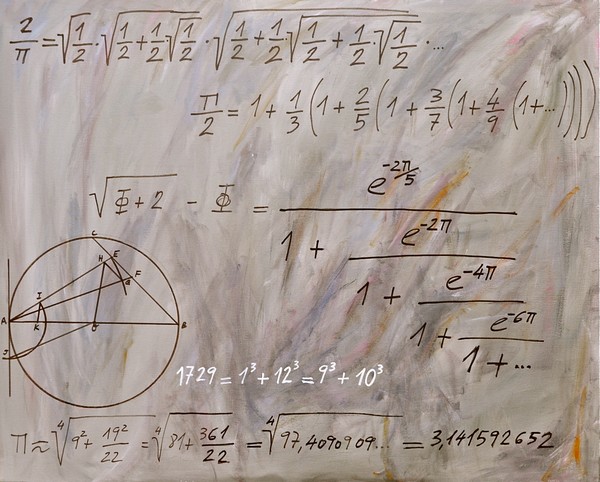 2/π = √(1/2) · √(1/2 + 1/2 √(1/2)) · √(1/2 + 1/2 √(1/2 + 1/2 · √(1/2))) · ...
π/2 = 1 + 1/3 (1 + 2/5 (1 + 3/7 (1 + 4/9 (1 + ...))))
√(Φ + 2) - Φ = e^(-2π/5) / (1 + e^(-2π) / (1 + e^(-4π) / (1 + e^(-6π) / (1 + ...))))
C
H E
F
G
I
A K O B
J
1729 = 1³ + 12³ = 9³ + 10³
π ≈ ⁴√(9² + 19²/22) = ⁴√(81 + 361/22) = ⁴√(97,4090909...) = 3,141592652